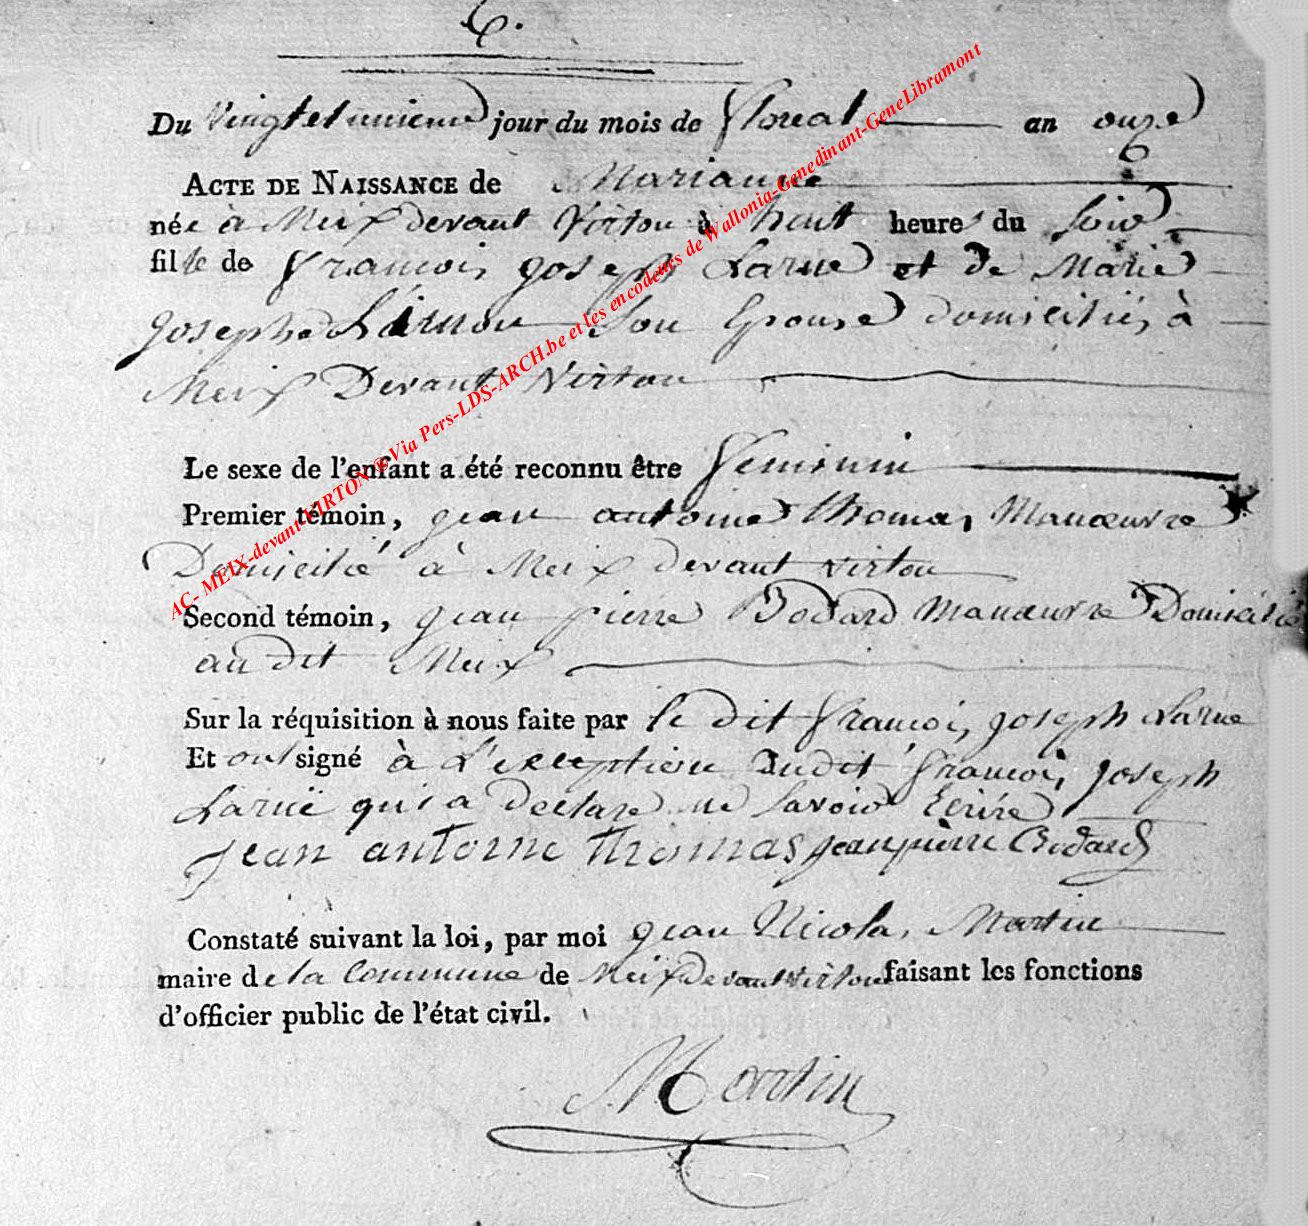 6.
Du vingt et unieme jour du mois de floreal an onze
ACTE DE NAISSANCE de Marianne
née à Meix devant Virton à huit heures du soir
fille de francois joseph Larue et de Marie
josephe son Epouse domiciliés à
Meix Devant Virton
Le sexe de l'enfant a été reconnu être feminin
Premier témoin, jean antoine thomas Manœuvre
Domicilié à Meix devant virton
Second témoin, jean pierre Bodard manœuvre Domicilié
au dit Meix
Sur la réquisition à nous faite par le dit francois joseph Larue
Et ont signé à L'exception dudit francois joseph
Larue qui a declare ne savoir Ecrire
jean antoine thomas jean pierre Bodard
Constaté suivant la loi, par moi jean Nicolas Martin
maire de la Commune de Meix devant virton faisant les fonctions
d'officier public de l'état civil.
Martin
AC- MEIX-devant VIRTON ® Via Pers-LDS-ARCH.be et les encodeurs de Wallonia-Genedinant-GeneLibramont